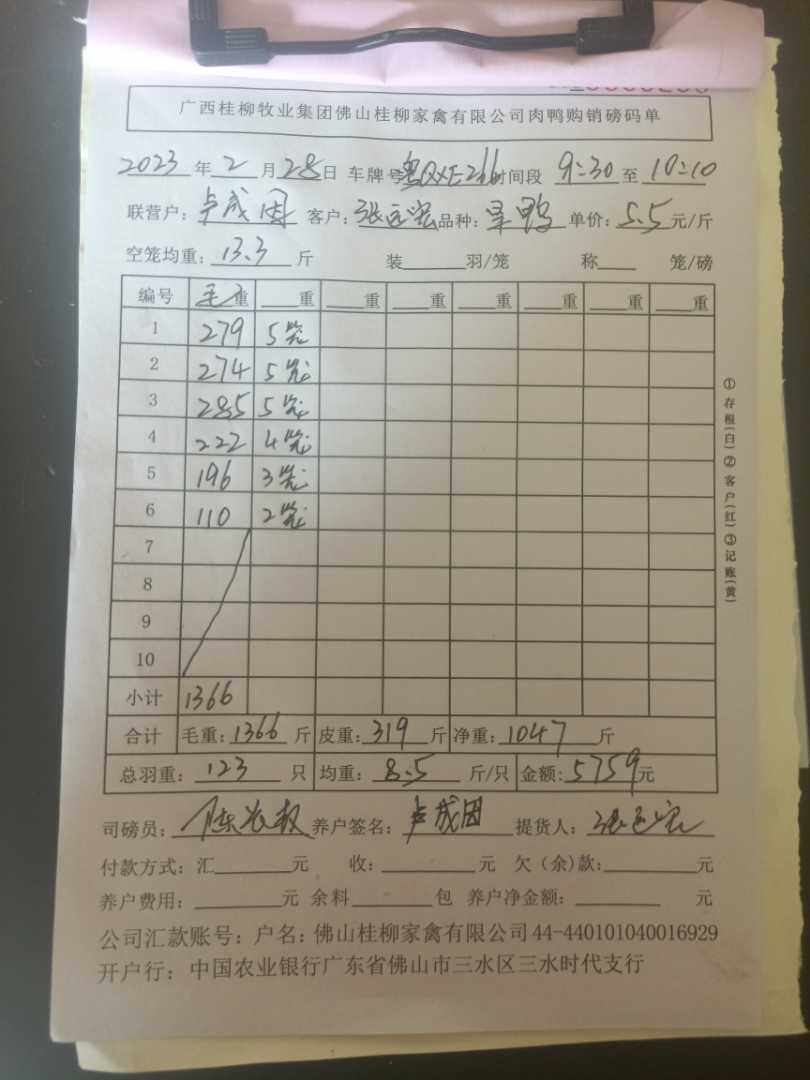 广西桂柳牧业集团佛山桂柳家禽有限公司肉鸭购销磅码单
2023 年 2 月 28 日 车牌号 粤QXE266 时间段 9:30 至 10:10
联营户: 卢成因 客户: 张 品种: 鸭 单价: 5.5 元/斤
空笼均重: 13.3 斤 装 羽/笼 称 笼/磅
编号 毛重 重 重 重 重 重 重 重
1 279 5笼
2 274 5笼
3 285 5笼
4 222 4笼
5 196 3笼
6 110 2笼
7
8
9
10
小计 1366
合计 毛重: 1366 斤 皮重: 319 斤 净重: 1047 斤
总羽重: 123 只 均重: 8.5 斤/只 金额: 5759 元
司磅员: 陈 养户签名: 卢成因 提货人: 张
付款方式: 汇 元 收: 元 欠(余)款: 元
养户费用: 元 余料 包 养户净金额: 元
公司汇款账号: 户名: 佛山桂柳家禽有限公司 44-440101040016929
开户行: 中国农业银行广东省佛山市三水区三水时代支行
①存根(白)②客户(红)③记账(黄)